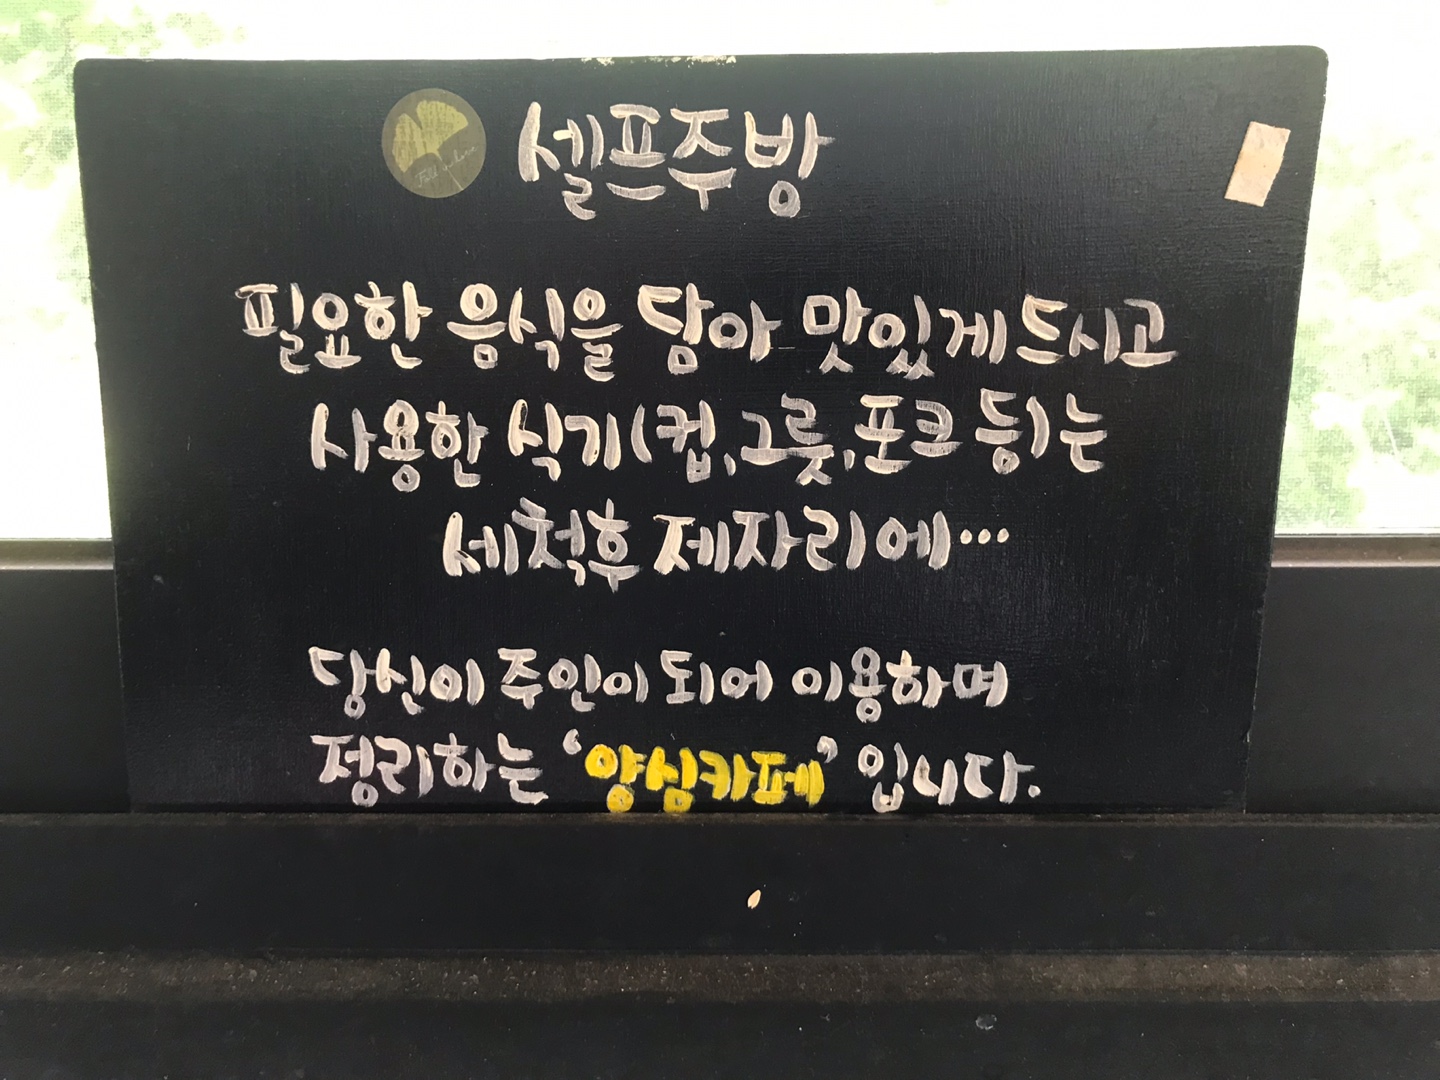 셀프주방
필요한 음식을 담아 맛있게 드시고
사용한 식기(컵,그릇,포크 등)는
세척후 제자리에…
당신이 주인이 되어 이용하며
정리하는 ‘양심카페’ 입니다.